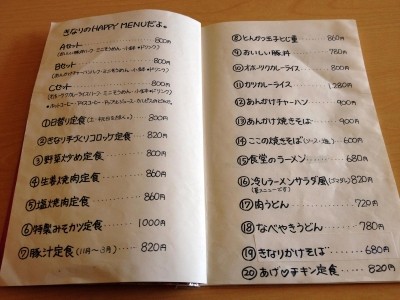 きなりのHAPPY MENUだよ。
Aセット 800円
Bセット 800円
Cセット 800円
①日替り定食 800円
②きなり手づくりコロッケ定食 820円
③野菜炒め定食 800円
④生姜焼肉定食 860円
⑤塩焼肉定食 860円
⑥特製みそカツ定食 1000円
⑦豚汁定食(11月〜3月) 820円
⑧とんかつ玉子とじ重 860円
⑨おいしい豚丼 780円
⑩オムライスカレーライス 800円
⑪カツカレーライス 1280円
⑫あんかけチャーハン 900円
⑬あんかけ焼きそば 900円
⑭ここの焼きそば(ソース・塩) 600円
⑮食堂のラーメン 680円
⑯冷しラーメンサラダ風(ゴマダレ) 820円
(夏メニューです)
⑰肉うどん 720円
⑱なべやきうどん 780円
⑲きなりかけそば 680円
⑳あげ♡チキン定食 820円